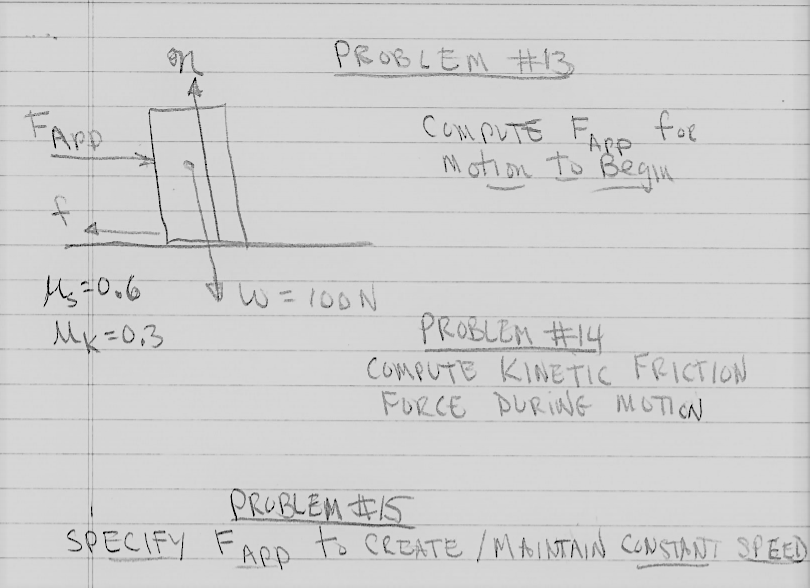 PROBLEM #13
n
F_APP
COMPUTE F_APP for
Motion to Begin
f
μ_s = 0.6
W = 100N
μ_K = 0.3
PROBLEM #14
COMPUTE KINETIC FRICTION
FORCE DURING MOTION
PROBLEM #15
SPECIFY F_APP to CREATE / MAINTAIN CONSTANT SPEED